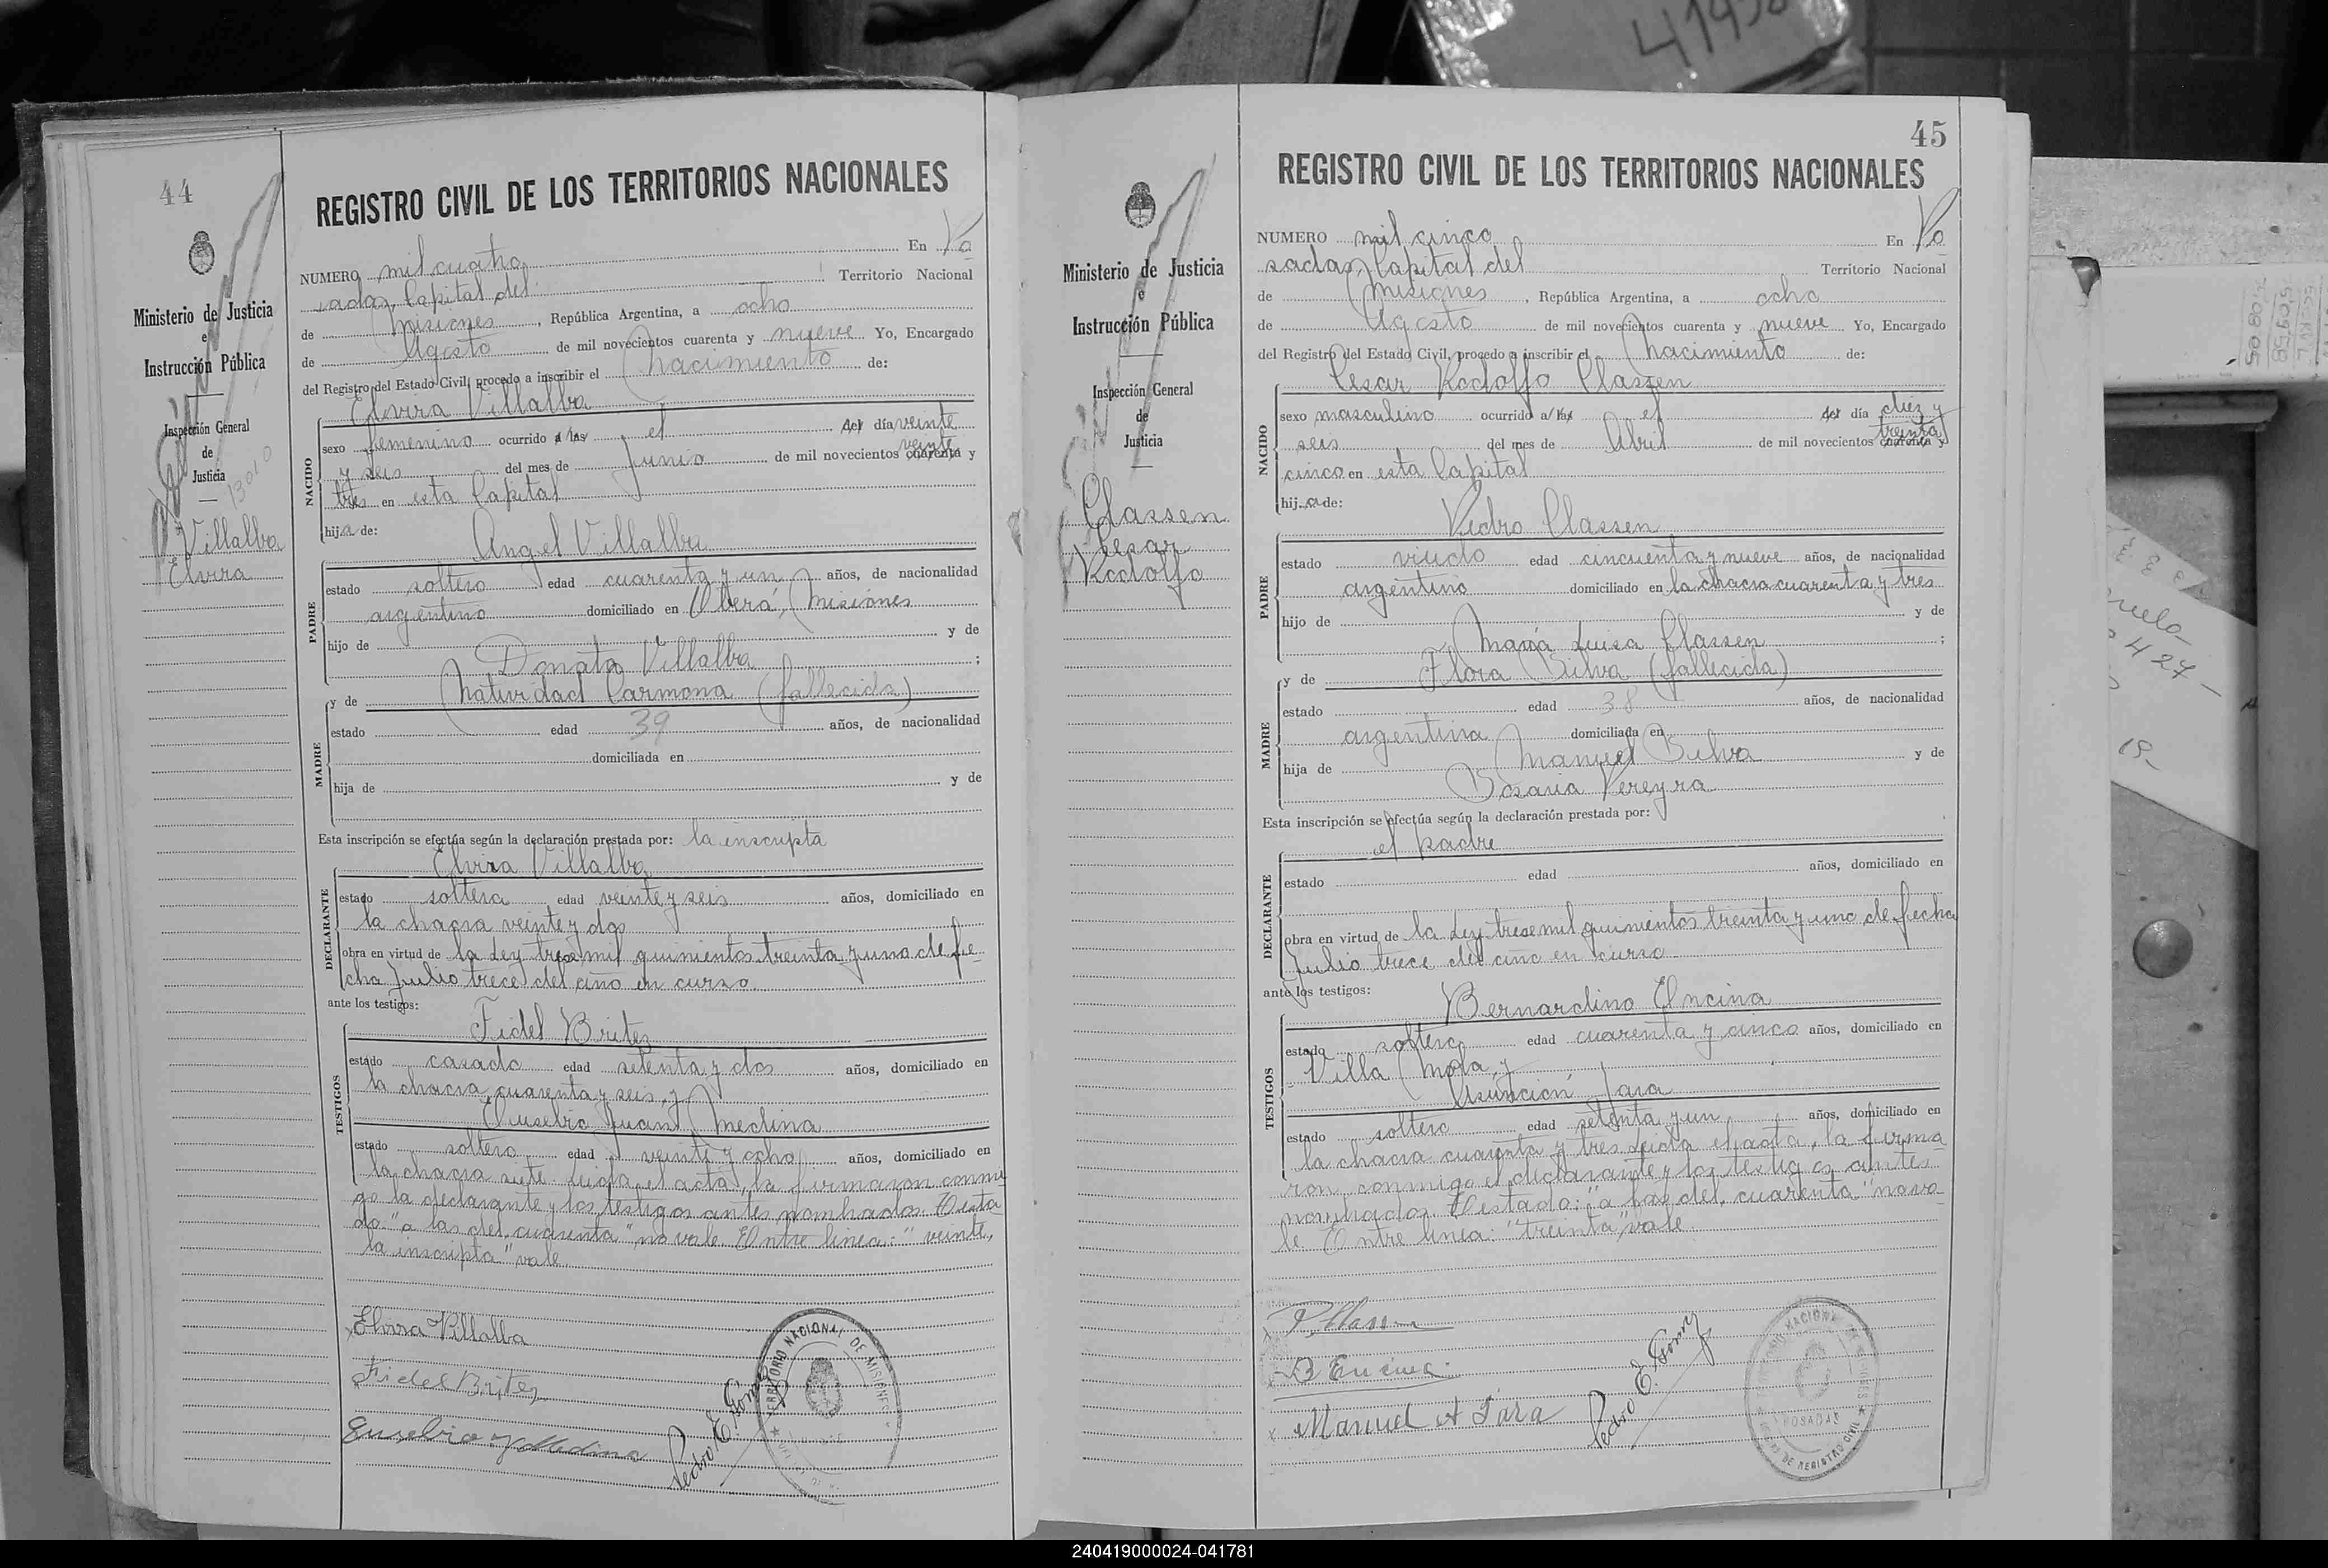 41498
44
Ministerio de Justicia
e
Instrucción Pública
Inspección General
de
Justicia
13010
Villalba
Elvira
REGISTRO CIVIL DE LOS TERRITORIOS NACIONALES
NUMERO mil cuatro En Po
sadas, Capital del Territorio Nacional
de Misiones, República Argentina, a ocho
de Agosto de mil novecientos cuarenta y nueve Yo, Encargado
del Registro del Estado Civil, procedo a inscribir el Nacimiento de:
Elvira Villalba
NACIDO
sexo femenino ocurrido a las el del día veinte
veinte
y seis del mes de Junio de mil novecientos cuarenta y
tres en esta Capital
hija de:
Angel Villalba
PADRE
estado soltero edad cuarenta y un años, de nacionalidad
argentino domiciliado en Oberá, Misiones
hijo de y de
Donata Villalba ;
y de Natividad Carmona (fallecida)
MADRE
estado edad 39 años, de nacionalidad
domiciliada en
hija de y de
Esta inscripción se efectúa según la declaración prestada por: la inscripta
Elvira Villalba
DECLARANTE
estado soltera edad veinte y seis años, domiciliado en
la chacra veinte y dos
obra en virtud de la Ley trece mil quinientos treinta y uno de fe-
cha Julio trece del año en curso
ante los testigos:
Fidel Britez
TESTIGOS
estado casado edad setenta y dos años, domiciliado en
la chacra cuarenta y seis, y
Eusebio Juan Medina
estado soltero edad veinte y ocho años, domiciliado en
la chacra siete. Leida el acta, la firmaron conmi
go la declarante y los testigos antes nombrados. Testa
do: "a las del, cuarenta" no vale. Entre linea: "veinte,
la inscripta" vale.
Elvira Villalba
Fidel Britez
Eusebio J Medina
Pedro E. Gomez
TERRITORIO NACIONAL DE MISIONES
45
Ministerio de Justicia
e
Instrucción Pública
Inspección General
de
Justicia
Classen
Cesar
Rodolfo
REGISTRO CIVIL DE LOS TERRITORIOS NACIONALES
NUMERO mil cinco En Po
sadas, Capital del Territorio Nacional
de Misiones, República Argentina, a ocho
de Agosto de mil novecientos cuarenta y nueve Yo, Encargado
del Registro del Estado Civil, procedo a inscribir el Nacimiento de:
Cesar Rodolfo Classen
NACIDO
sexo masculino ocurrido a las el del día diez y
treinta
seis del mes de Abril de mil novecientos cuarenta y
cinco en esta Capital
hijo de:
Pedro Classen
PADRE
estado viudo edad cincuenta y nueve años, de nacionalidad
argentino domiciliado en la chacra cuarenta y tres
hijo de y de
María Luisa Classen ;
y de Flora Silva (fallecida)
MADRE
estado edad 38 años, de nacionalidad
argentina domiciliada en
hija de Manuel Silva y de
Rosaria Pereyra
Esta inscripción se efectúa según la declaración prestada por:
el padre
DECLARANTE
estado edad años, domiciliado en
obra en virtud de la Ley trece mil quinientos treinta y uno de fecha
Julio trece del año en curso
ante los testigos:
Bernardino Encina
TESTIGOS
estado soltero edad cuarenta y cinco años, domiciliado en
Villa Mola, y
Asunción Jara
estado soltero edad setenta y un años, domiciliado en
la chacra cuarenta y tres. Leida el acta, la firma
ron conmigo el declarante y los testigos antes
nombrados. Testado: "a las del, cuarenta" no va
le. Entre linea: "treinta" vale.
P. Classen
B Encina
Manuel A Jara
Pedro E. Gomez
POSADAS
DE REGISTRO CIVIL
240419000024-041781